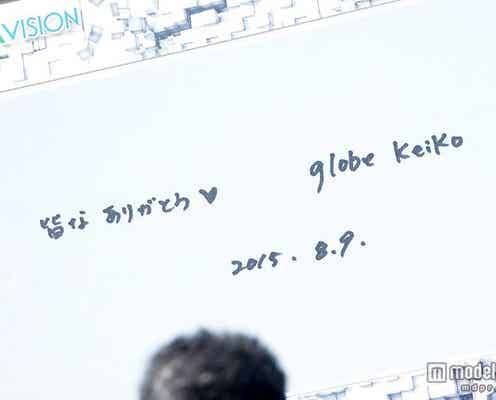 VISION
globe Keiko
皆な ありがとう♥
2015. 8.9.
model
mdpr